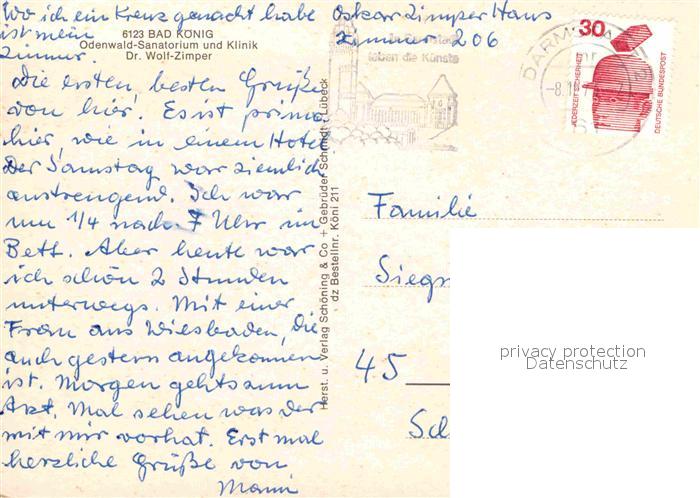 Wo ich ein Kreuz gemacht habe
ist mein
Zimmer.
6123 BAD KÖNIG
Odenwald-Sanatorium und Klinik
Dr. Wolf-Zimper
Die ersten, besten Grüße
von hier. Es ist prima
hier, wie in einem Hotel
Der Samstag war ziemlich
anstrengend. Ich war
um 1/4 nach 7 Uhr im
Bett. Aber heute war
ich schön 2 Stunden
unterwegs. Mit einer
Frau aus Wiesbaden, die
auch gestern angekommen
ist. Morgen gehts zum
Arzt. Mal sehen was der
mit mir vorhat. Erst mal
herzliche Grüße von
Mami
Herst. u. Verlag Schöning & Co + Gebrüder Schmidt, Lübeck
dz Bestellnr. Köni 211
Oskar Zimper Haus
Zimmer 206
In Darmstadt
leben die Künste
DARMSTADT
-8.10.7
30
JEDERZEIT SICHERHEIT
DEUTSCHE BUNDESPOST
Familie
Siegm
45
Sch
privacy protection
Datenschutz